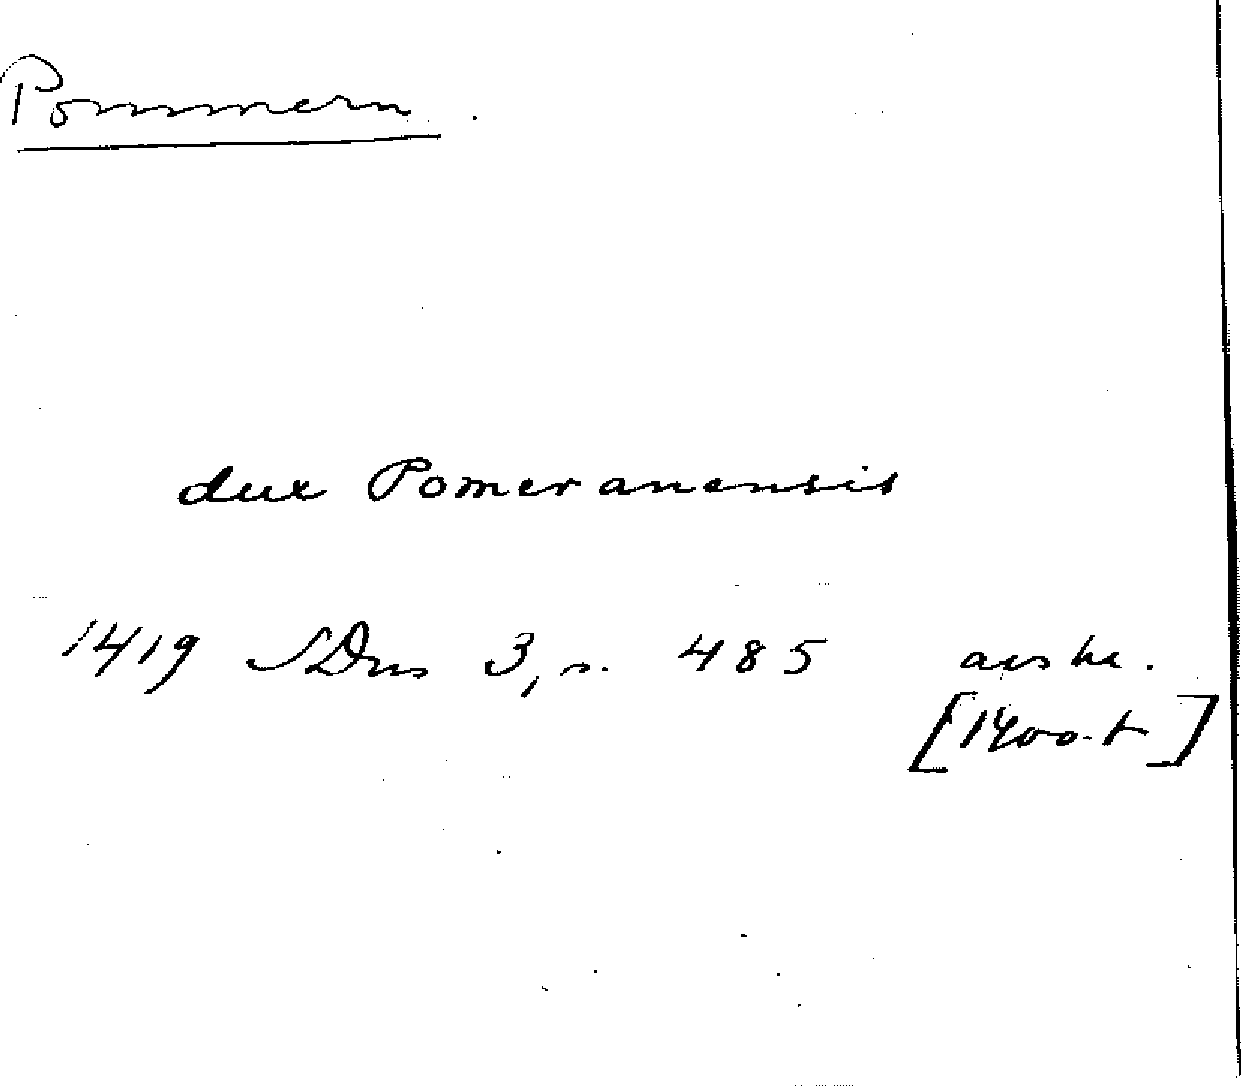 Pommern
dux Pomeranensis
1419 SDns 3, s. 485 avskr.
[1400-t]